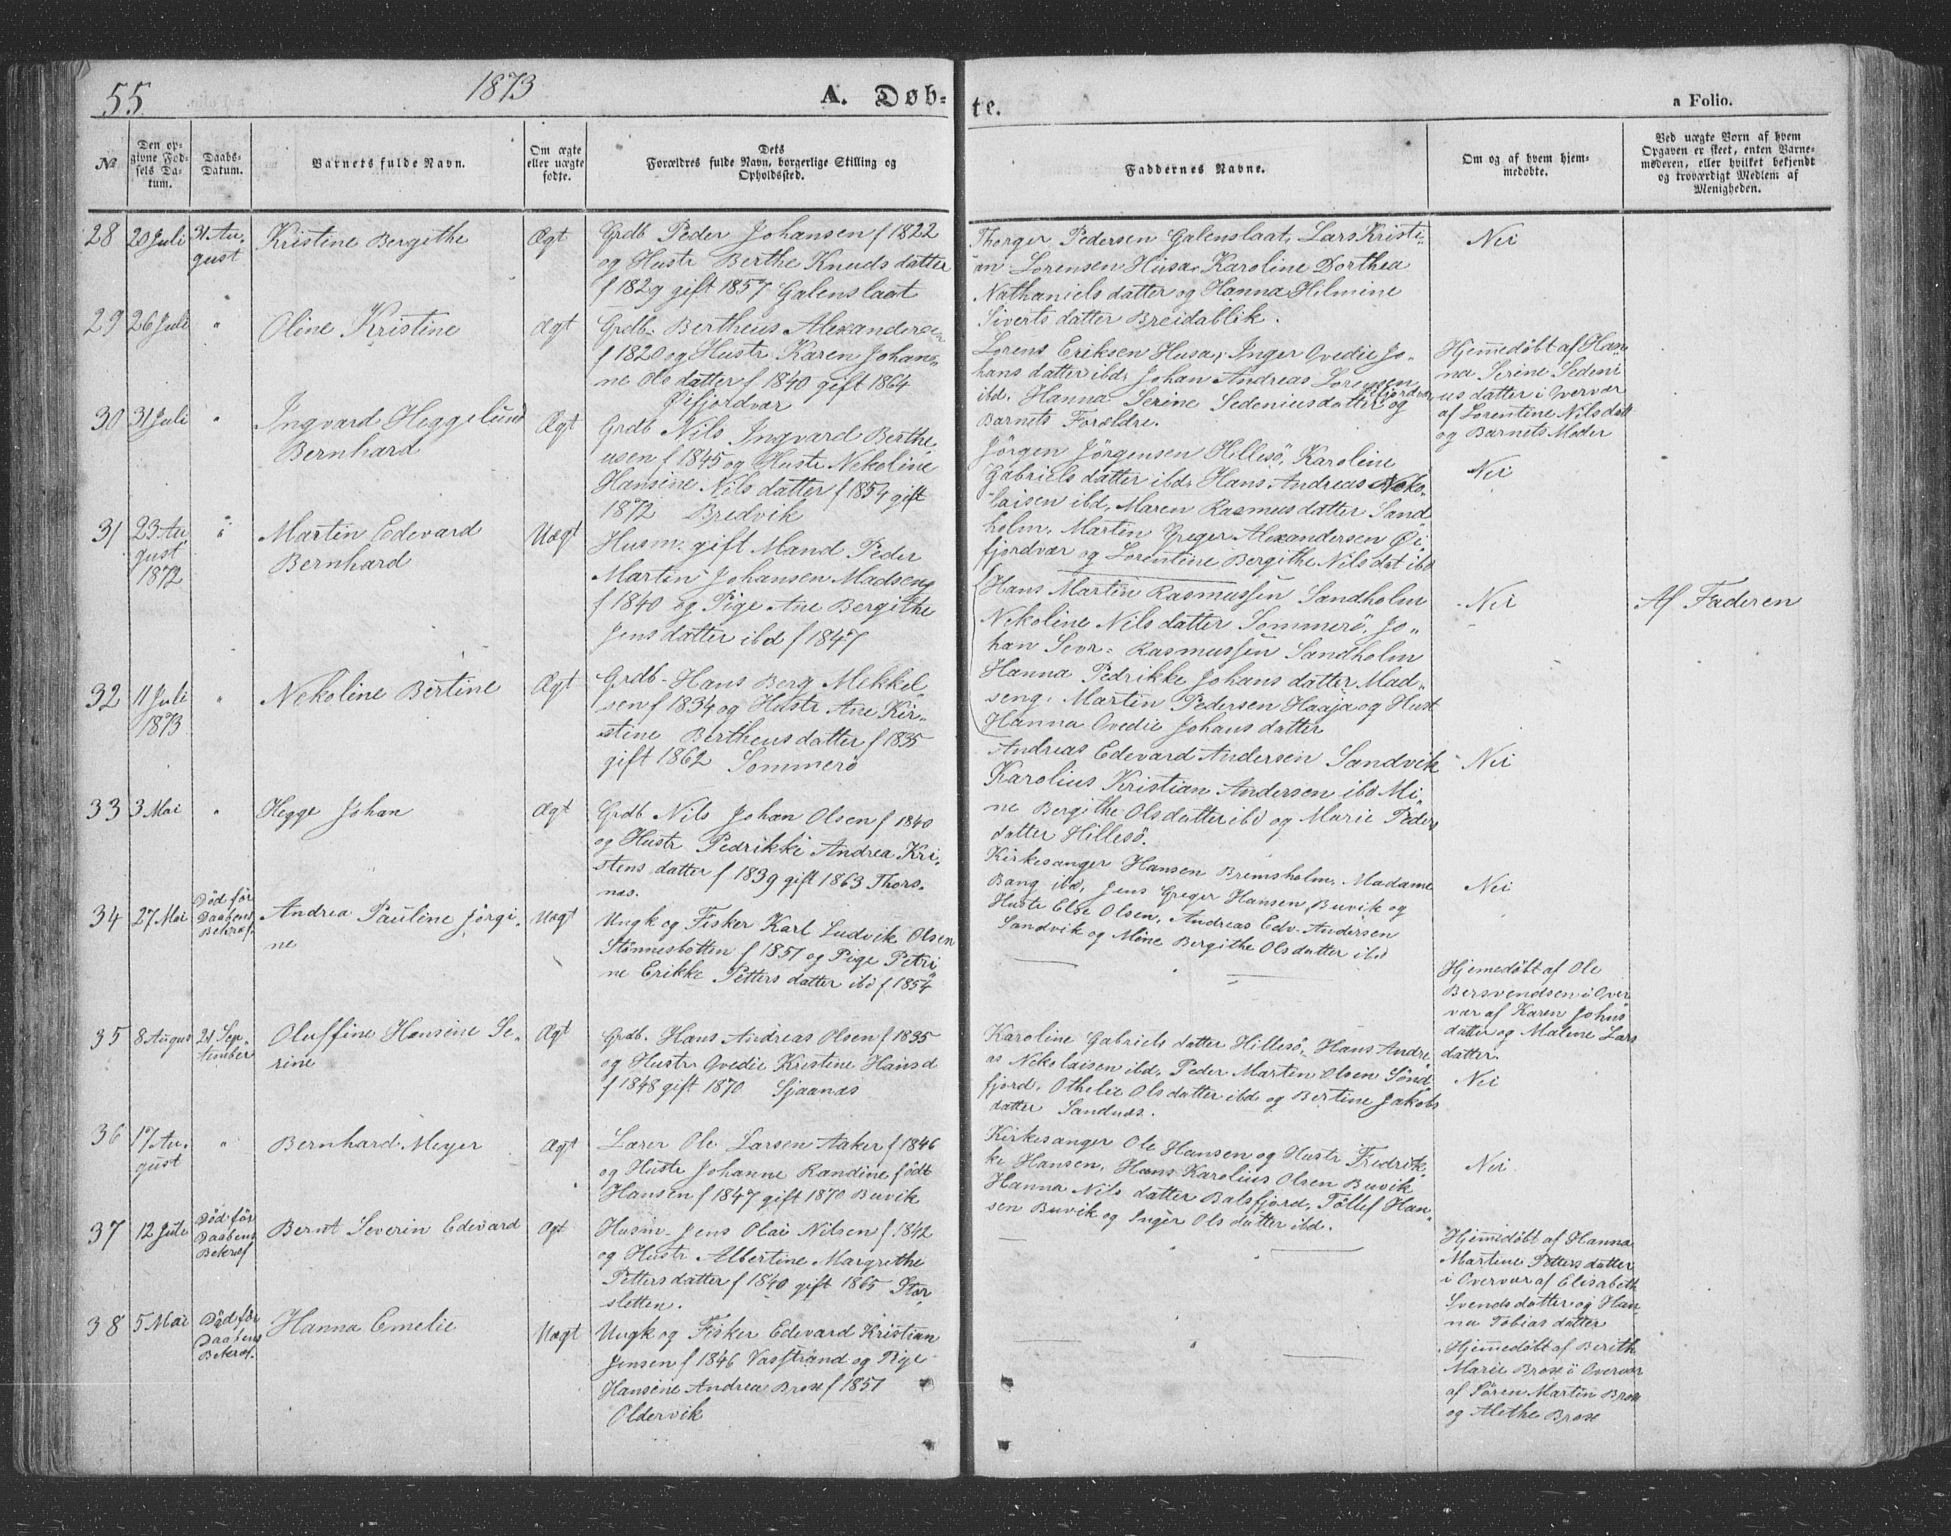 55
1873
A. Døb-
te.
a Folio.
No
Den op-
givne Fød-
sels Da-
tum.
Daabs-
Datum.
Barnets fulde Navn.
Om ægte
eller uægte
fødte.
Dets
Forældres fulde Navn, borgerlige Stilling og
Opholdssted.
Faddernes Navne.
Om og af hvem hjem-
medøbte.
Ved uægte Børn af hvem
Opgaven er skeet, enten Barne-
møderen, eller hvilket bekjendt
og troværdigt Medlem af
Menigheden.
28 20 Juli 31 Au-
gust
Kristine Bergithe
Ægt
Grdb Peder Johansen f 1822
og Hustr Berthe Knudsdatter
f 1829 gift 1857 Galenslaat
Thorger Pedersen Galenslaat, Lars Kristi-
an Lorensen Husa, Karoline Dorthea
Nathanielsdatter og Hanna Helmine
Sivertsdatter Breidablik.
Nei
29 26 Juli "
Oline Kristine
Ægt
Grdb. Bertheus Alexandersen
f 1820 og Hustr Karen Johan-
ne Olsdatter f 1840 gift 1864
Øifjordvær
Lorens Eriksen Husa, Inger Ovedie Jo-
hansdatter ibd, Johan Andreas Lorensen
ibd, Hanna Serine Sedeniusdatter Øifjordvær og
Barnets Forældre.
Hjemmedøbt af Han-
na Serine Sedeni
usdatter i Overvær
af Lorentine Nilsdatt
og Barnets Moder
30 31 Juli "
Ingvard Heggelund
Bernhard
Ægt
Grdb Nils Ingvard Berthe-
usen f 1845 og Hustr Nekoline
Hansine Nilsdatter f 1854 gift
1872 Bredvik
Jörgen Jörgensen Hillesö, Karoline
Gabrielsdatter ibd, Hans Andreas Neko-
laisen ibd, Maren Rasmusdatter Sand
holm, Martin Greger Alexandersen Öi-
fjordvær og Lorentine Bergithe Nilsdat ibd
Nei
31 23 Au-
gust
1872
"
Martin Edevard
Bernhard
Uægt
Husm. gift Mand Peder
Martin Johansen Madseng
f 1840 og Pige Ane Bergithe
Jensdatter ibd f 1847
Hans Martin Rasmussen Sandholm
Nekoline Nilsdatter Sommerö, Jo-
han Sevr. Rasmussen Sandholm
Hanna Pedrikke Johansdatter Mad-
seng, Martin Pedersen Haaja og Hust
Hanna Ovedie Johansdatter
Nei
Af Faderen
32 11 Juli
1873
"
Nekoline Bertine
Ægt
Grdb. Hans Berg Mekkel-
sen f 1834 og Hustr Ane Kir-
stine Bertheusdatter f 1835
gift 1862 Sommerö
Andreas Edevard Andersen Sandvik
Karolius Kristian Andersen ibd Mi-
ne Bergithe Olsdatter ibd og Marie Peders
datter Hillesö.
Nei
33 3 Mai "
Hegge Johan
Ægt
Grdb Nils Johan Olsen f 1840
og Hustr Pedrikke Andrea Kri-
stensdatter f 1839 gift 1863 Thors-
nas.
Kirkesanger Hansen Bremsholm, Madame
Bang ibd, Jens Greger Hansen, Buvik og
Hustr Else Olsen, Andreas Edv. Andersen
Sandvik og Mine Bergithe Olsdatter ibd
Nei
34 27 Mai
Död för
Daabens
Bekræf.
Andrea Pauline Jörgi-
ne
Uægt
Ungk og Fisker Karl Ludvik Olsen
Stönnesbotten f 1851 og Pige Petri-
ne Erikke Pettersdatter ibd f 1854
Hjemedöbt af Ole
Bersvendsen i Over
vær af Karen Johns
datter og Malene Lars
datter.
35 8 Augus 21 Sep-
tember
Oluffine Hansine Se-
rine
Ægt
Grdb. Hans Andreas Olsen f 1835
og Hustr Ovedie Kristine Hansd
f 1848 gift 1870 Sjaanæs
Karoline Gabrielsdatter Hillesö, Hans Andre
as Nekolaisen ibd, Peder Martin Olsen Sönd
fjord, Othelie Olsdatter ibd og Bertine Jakobs
datter Sandnes.
Nei
36 17 Au-
gust
"
Bernhard Meyer
Ægt
Lærer Ole Larsen Aaker f 1846
og Hustr Johanne Randine født
Hansen f 1847 gift 1870 Buvik
Kirkesanger Ole Hansen og Hustr Fredrik
ke Hansen, Hans Karolius Olsen Buvik
Hanna Nilsdatter Balsfjord, Töllef Han-
sen Buvik og Inger Olsdatter ibd.
Nei
37 12 Juli
Död för
Daabens
Bekræf
Bernt Severin Edevard
Ægt
Husm. Jens Olai Nilsen f 1842
og Hustr Albertine Margrethe
Pettersdatter f 1840 gift 1865 Stor-
sletten.
Hjemmedöbt af Hanna
Martine Pettersdatter
i Overvær af Elisabeth
Svendsdatter og Han
na Tobiasdatter
38 5 Mai
Död för
Daabens
Bekræf.
Hanna Emelie
Uægt
Ungk og Fisker Edevard Kristian
Jensen f 1846 Vasstrand og Pige
Hansine Andrea Brose f 1851
Oldervik
Hjemmedöbt af Berith
Marie Brose i Overvær
af Sören Martin Brose
og Alethe Brose